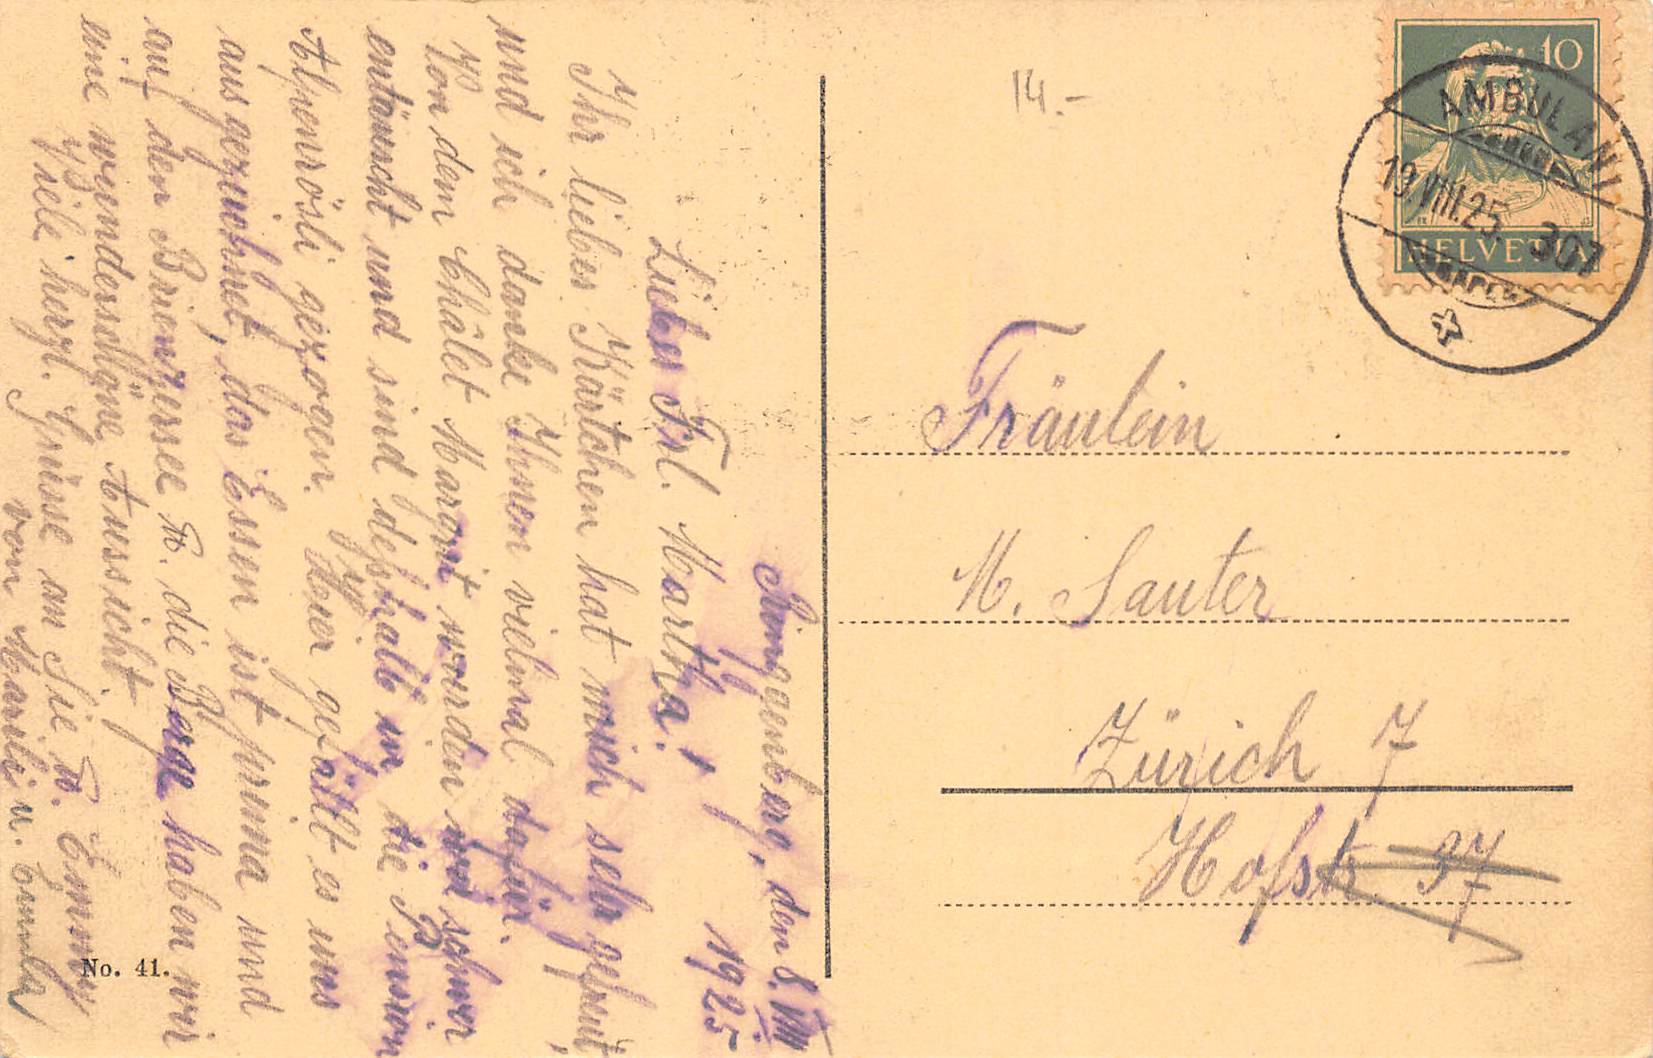 Ringgenberg, den 8. VIII
1925
Liebes Frl. Martha!
Ihr liebes Kärtchen hat mich sehr gefreut,
und ich danke Ihnen vielmal dafür.
Von dem Châlet Margrit wurden wir schwer
entäuscht und sind deshalb in die Pension
Alpenrösli gezogen. Hier gefällt es uns
ausgezeichnet, das Essen ist prima und
auf den Brienzersee u. die Berge haben wir
eine wunderschöne Aussicht.
Viele herzl. Grüsse an Sie u. Emmy
von Marili u.
No. 41.
14.-
10
HELVETIA
AMBULANT
19.VIII.25. 307
Fräulein
M. Sauter
Zürich 7
Hofstr. 37